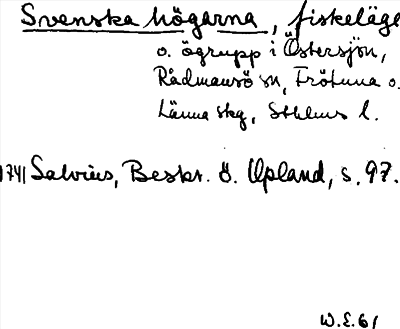 Svenska högarna, fiskeläge
o. ögrupp i Östersjön,
Rådmansö sn, Frötuna o.
Länna skg, Sthlms l.
1741 Salvius, Beskr. ö. Upland, s. 97.
W.E. 61